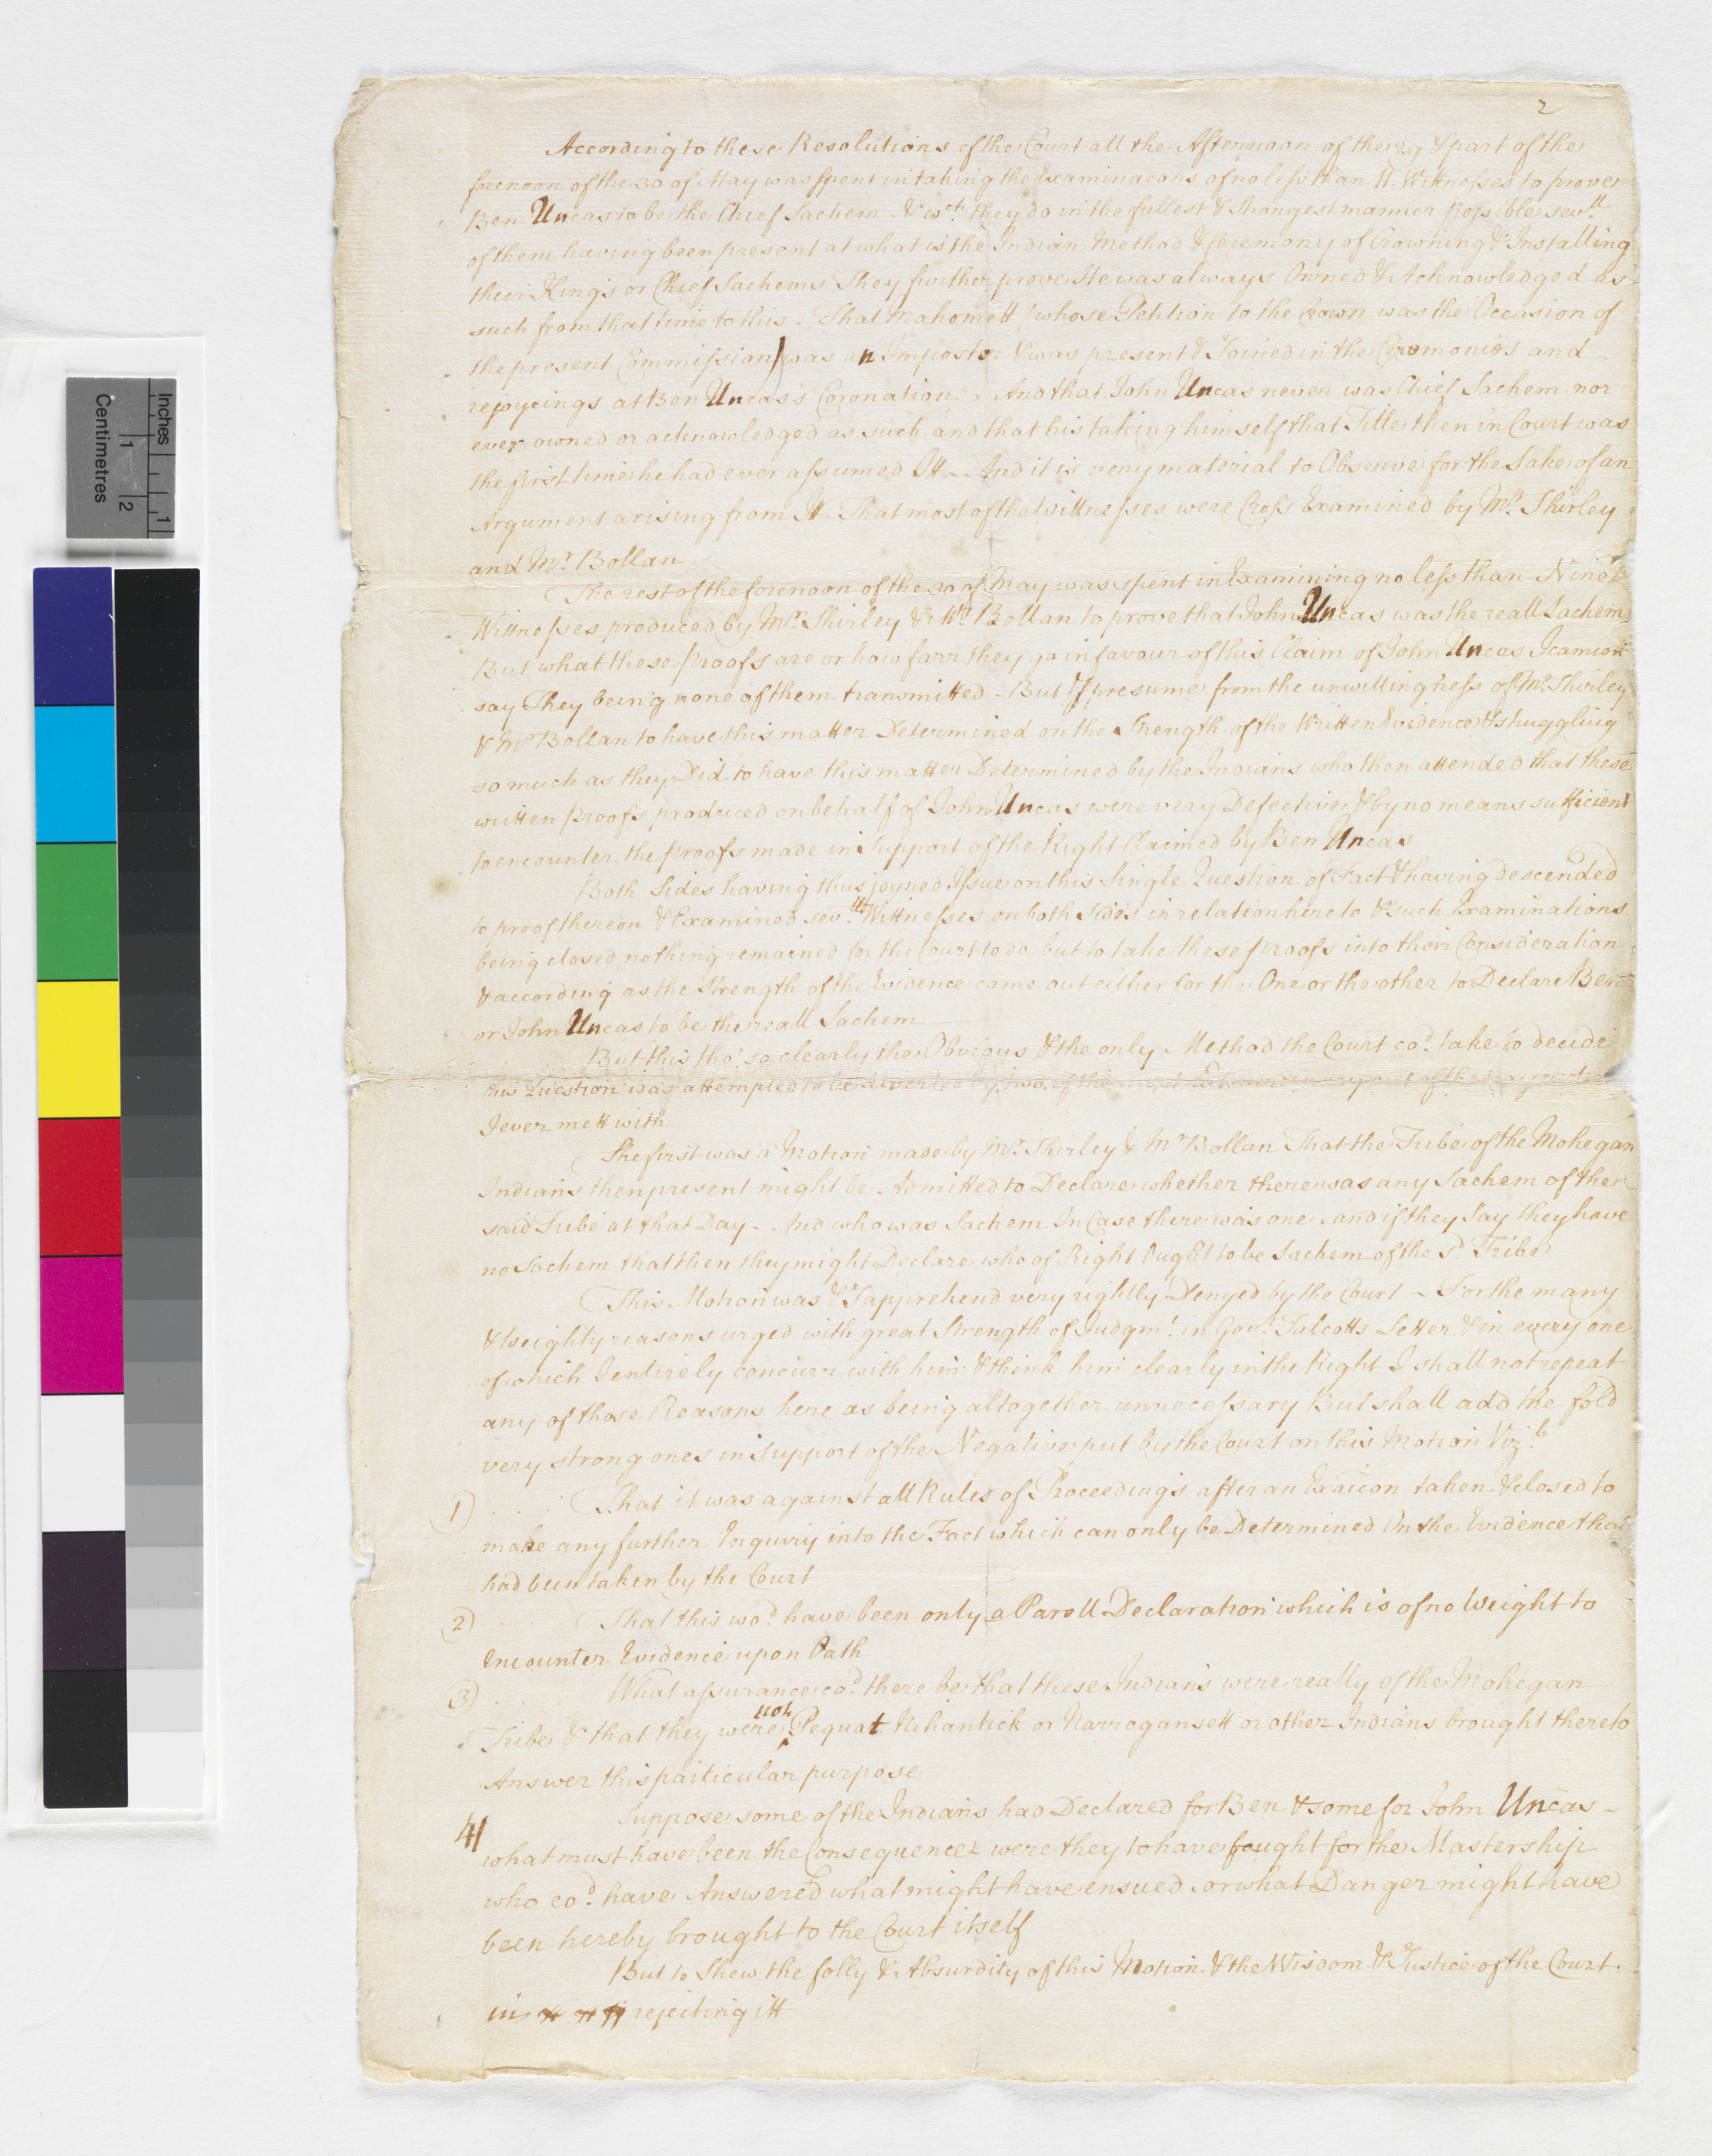 2
According to these Resolutions of the Court all the Afternoon of the 29 & part of the
forenoon of the 30 of May was spent in taking the Examinacons of no less than 11. Wittnesses to prove
Ben Uncas to be the Chief Sachem & wch. they do in the fullest & strongest manner possible sevll.
of them having been present at what is the Indian Method & Ceremony of Crowning & Installing
their Kings or Chief Sachems They further prove He was always Owned & Acknowledged as
such from that time to this. That Mahomett (whose Petition to the Crown was the Occasion of
the present Commission) was an Impostor & was present & Joined in the Ceremonies and
rejoycings at Ben Uncas's Coronation. And that John Uncas never was Chief Sachem nor
ever owned or acknowledged as such and that his taking himself that Title then in Court was
the first time he had ever assumed Itt. And it is very material to Observe for the Sake of an
Argument arising from It That most of the Wittnesses were Cross Examined by Mr. Shirley
and Mr. Bollan
The rest of the forenoon of the 30 of May was spent in Examining no less than Nine
Wittnesses produced by Mr. Shirley & Mr. Bollan to prove that John Uncas was the reall Sachem
But what these proofs are or how farr they go in favour of this Claim of John Uncas I cannott
say They being none of them transmitted - But I presume from the unwillingness of Mr. Shirley
& Mr Bollan to have this matter Determined on the Strength of the Written Evidence & struggling
so much as they Did to have this matter Determined by the Indians who then attended that these
written proofs produced on behalf of John Uncas were very Defective & by no means sufficient
to encounter the proofs made in Support of the Right Claimed by Ben Uncas
Both Sides having thus joyned Issue on this Single Question of Fact & having descended
to proof thereon & Examined sevll. Wittnesses on both Sides in relation hereto & such Examinations
being closed nothing remained for the Court to do but to take these proofs into their Consideration
& according as the Strength of the Evidence came out either for the One or the other to Declare Ben
or John Uncas to be the reall Sachem
But this tho' so clearly the Obvious & the only Method the Court cod. take to decide
this Question was attempted to be diverted by two of the most Extraordinary
I ever mett with
The first was a Motion made by Mr. Shirley & Mr Bollan That the Tribe of the Mohegan
Indians then present might be Admitted to Declare whether there was any Sachem of the
said Tribe at that Day - And who was Sachem In Case there was one and if they Say they have
no Sachem that then they might Declare who of Right Ought to be Sachem of the sd. Tribe
This Motion was & I apprehend very rightly Denyed by the Court - For the many
& Weighty reasons urged with great Strength of Judgmt. in Govr. Talcotts Letter & in every one
of which I entirely concurr with him & think him clearly in the Right I shall not repeat
any of those Reasons here as being altogether unnecessary But shall add the fold
very strong ones in Support of the Negative put by the Court on this Motion Vizt.
1) That it was against all Rules of Proceedings after an Exaicon taken & closed to
make any further Inquiry into the Fact which can only be Determined On the Evidence that
had been taken by the Court
2) That this wod. have been only a Paroll Declaration which is of no Weight to
Encounter Evidence upon Oath
3) What assurance cod. there be that these Indians were really of the Mohegan
Tribe & that they were not Pequat Nihantick or Narrogansett or other Indians brought there to
Answer this particular purpose
4 Suppose some of the Indians had Declared for Ben & some for John Uncas -
what must have been the Consequence were they to have fought for the Mastership
who cod. have Answered what might have ensued or what Danger might have
been hereby brought to the Court itself
But to Shew the folly & Absurdity of this Motion & the Wisdom & Justice of the Court
in rejecting itt
Inches
1
Centimetres
1
2